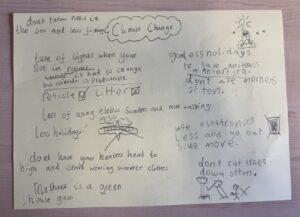 dont throw nets in
the sea and less fishing
Climate Change
turn of lights when your
not in rooms
weather is hard to change
but climate is predictable
resicle litter
Less of using eletric Scooters and more walking.
Less holidays
dont have your heaters heat to
high and start wearing warmer clothes
Methane is a green
house gas
less holidays
to save animals
in Antartica.
dont use machines
often.
use electronics
Less and go out
Side more.
dont cut trees
down often.